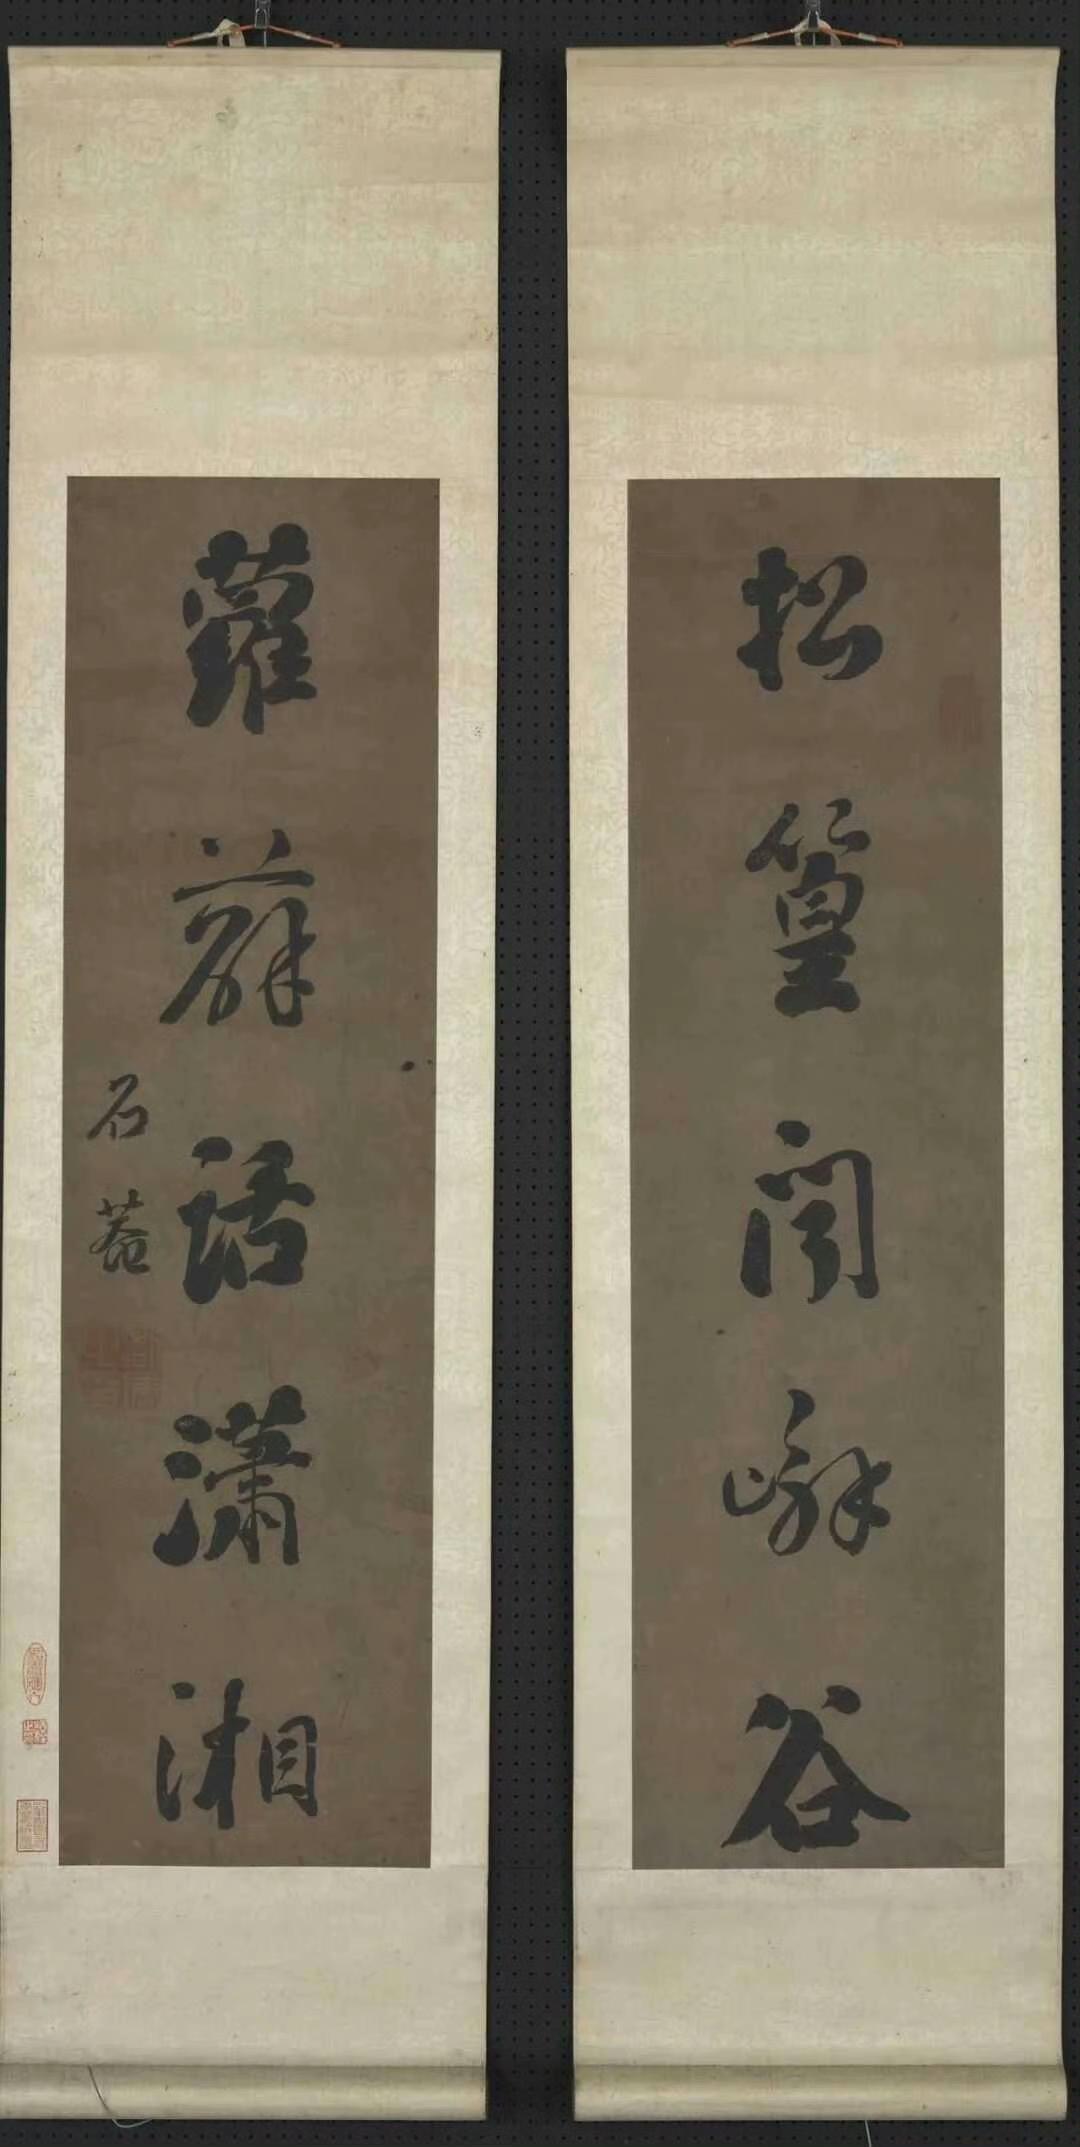 松篁聞嶰谷
蘿薜話瀟湘
石菴